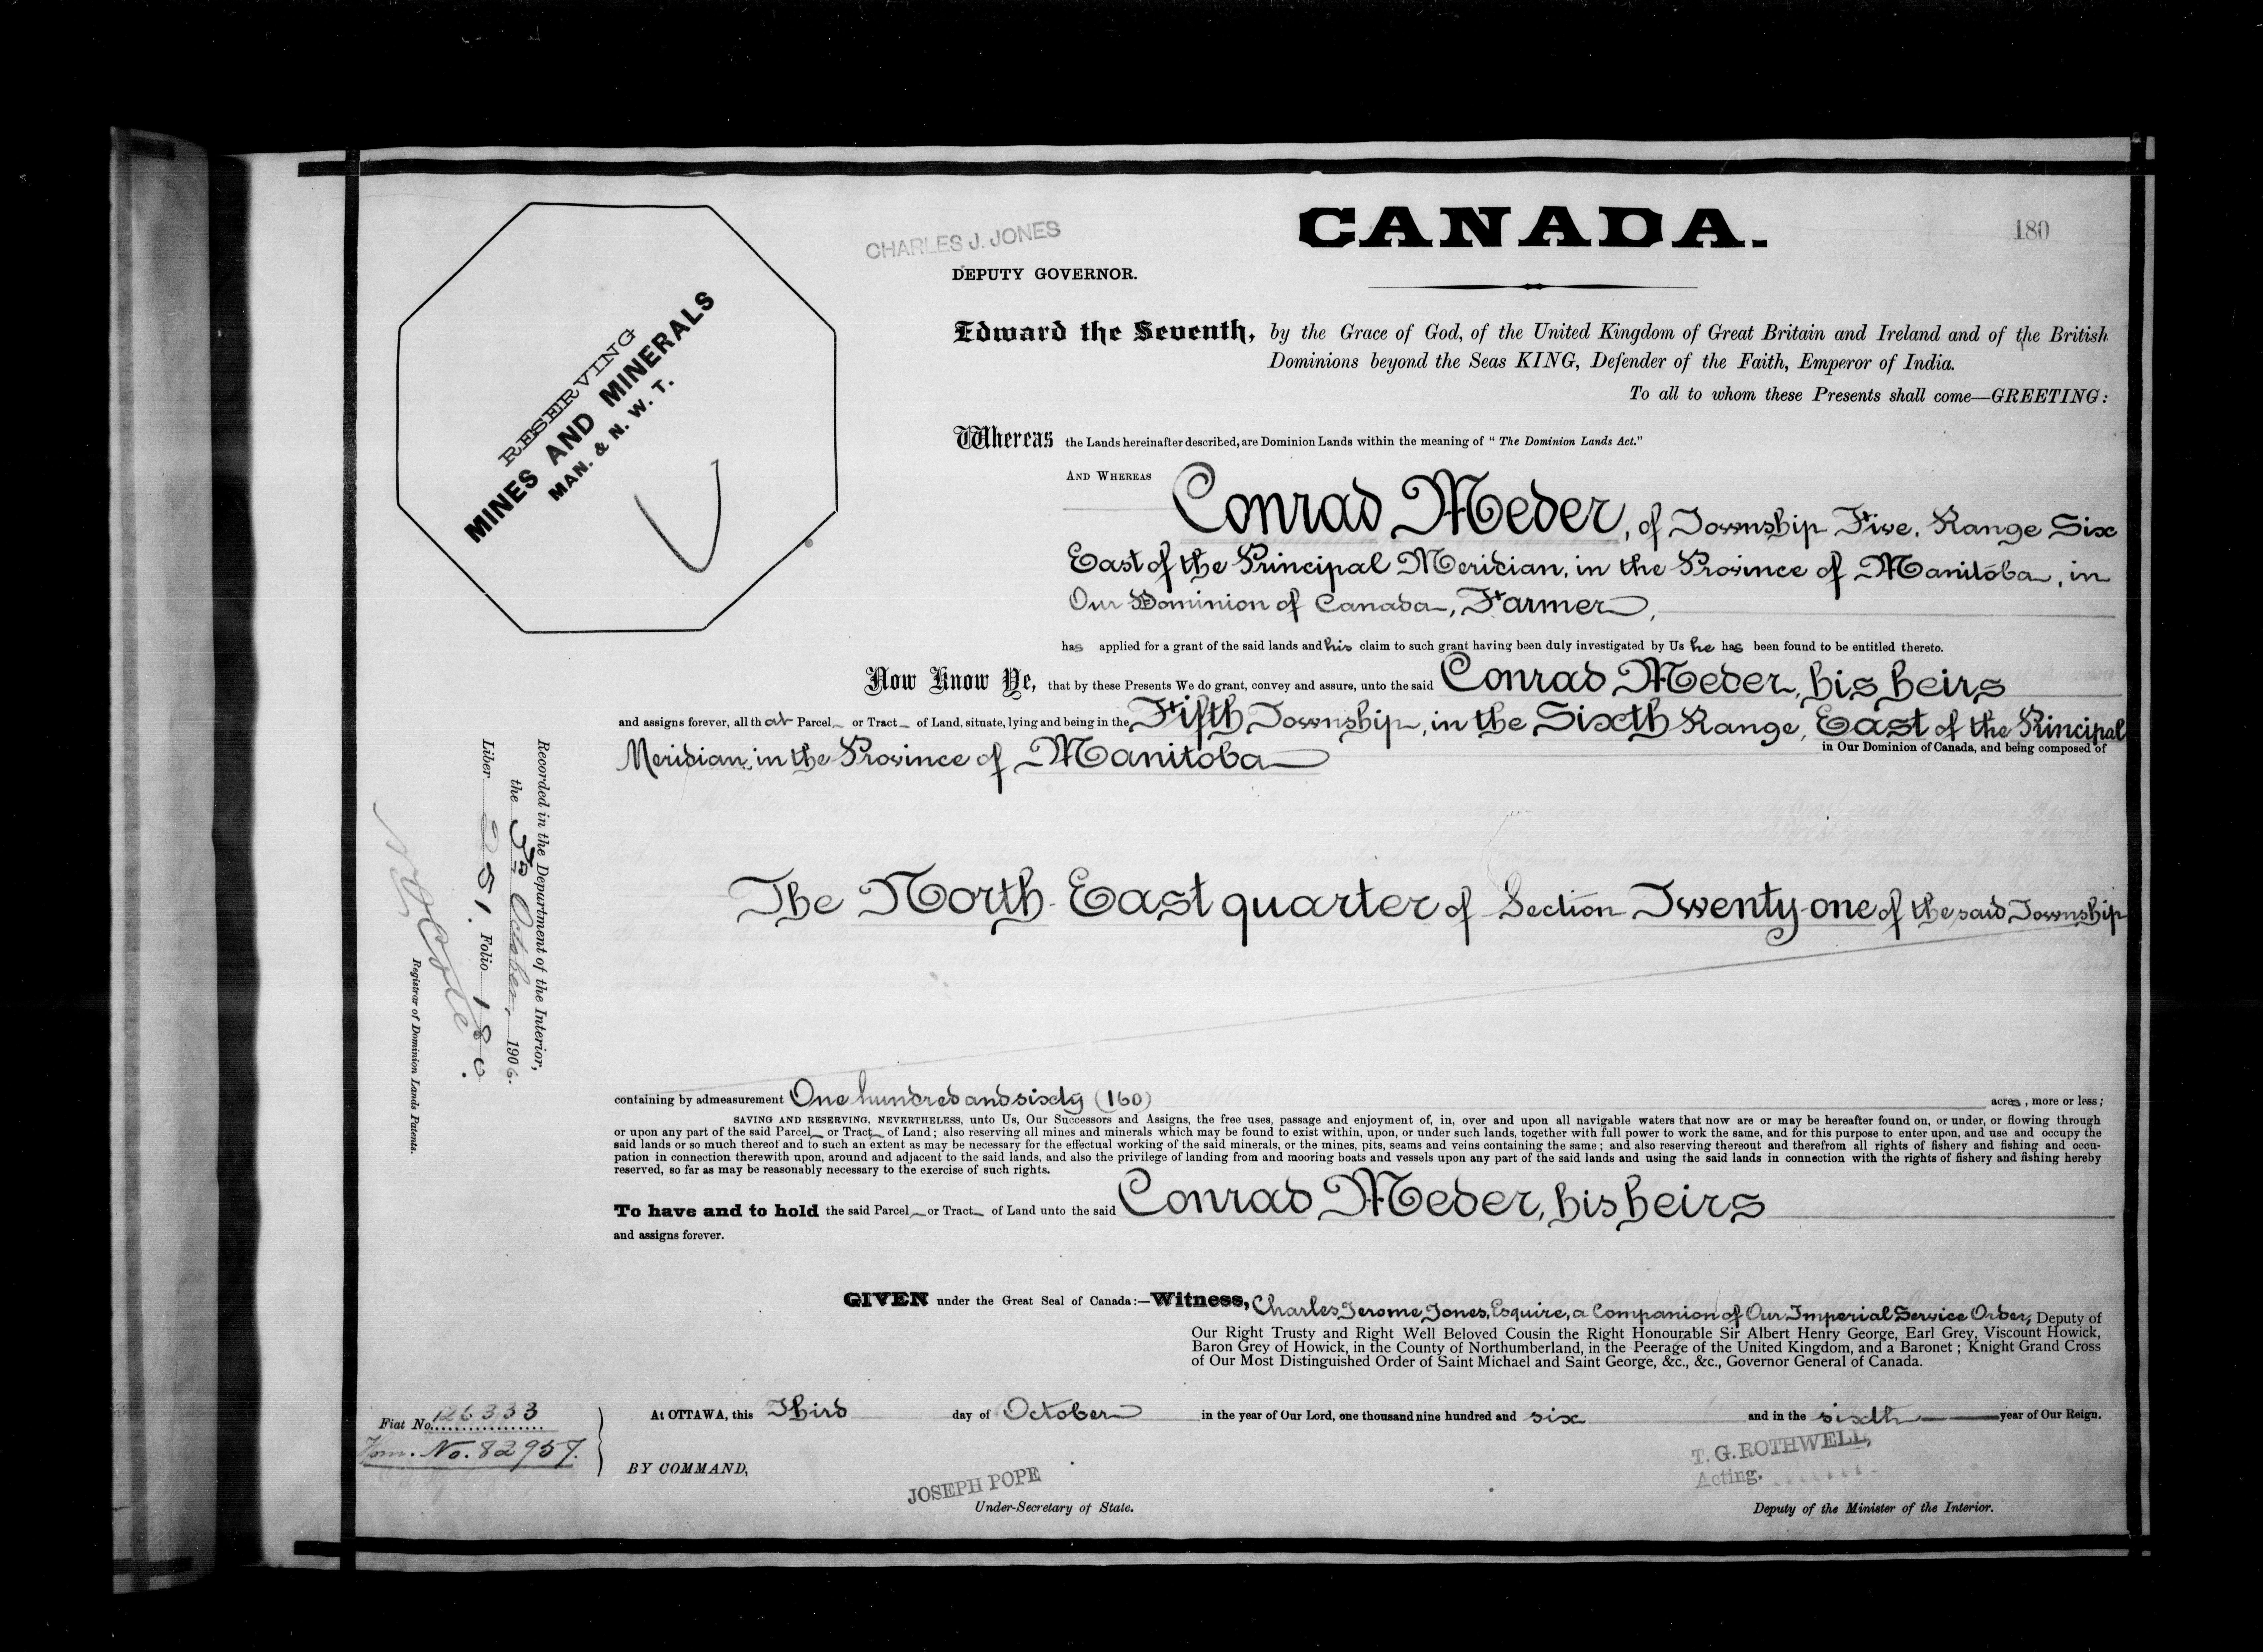 CHARLES J. JONES
DEPUTY GOVERNOR.
CANADA.
180
RESERVING
MINES AND MINERALS
MAN. & N. W. T.
Edward the Seventh, by the Grace of God, of the United Kingdom of Great Britain and Ireland and of the British
Dominions beyond the Seas KING, Defender of the Faith, Emperor of India.
To all to whom these Presents shall come—GREETING:
Whereas the Lands hereinafter described, are Dominion Lands within the meaning of "The Dominion Lands Act."
AND WHEREAS
Conrad Meder, of Township Five, Range Six
East of the Principal Meridian, in the Province of Manitoba, in
Our Dominion of Canada, Farmer,
has applied for a grant of the said lands and his claim to such grant having been duly investigated by Us he has been found to be entitled thereto.
Now Know Ye, that by these Presents We do grant, convey and assure, unto the said Conrad Meder, his heirs
and assigns forever, all that Parcel or Tract of Land, situate, lying and being in the Fifth Township, in the Sixth Range, East of the Principal
Meridian, in the Province of Manitoba in Our Dominion of Canada, and being composed of
The North East quarter of Section Twenty-one of the said Township
containing by admeasurement One hundred and sixty (160) acres, more or less;
SAVING AND RESERVING, NEVERTHELESS, unto Us, Our Successors and Assigns, the free uses, passage and enjoyment of, in, over and upon all navigable waters that now are or may be hereafter found on, or under, or flowing through
or upon any part of the said Parcel or Tract of Land; also reserving all mines and minerals which may be found to exist within, upon, or under such lands, together with full power to work the same, and for this purpose to enter upon, and use and occupy the
said lands or so much thereof and to such an extent as may be necessary for the effectual working of the said minerals, or the mines, pits, seams and veins containing the same; and also reserving thereout and therefrom all rights of fishery and fishing and occu-
pation in connection therewith upon, around and adjacent to the said lands, and also the privilege of landing from and mooring boats and vessels upon any part of the said lands and using the said lands in connection with the rights of fishery and fishing hereby
reserved, so far as may be reasonably necessary to the exercise of such rights.
To have and to hold the said Parcel or Tract of Land unto the said Conrad Meder, his heirs
and assigns forever.
GIVEN under the Great Seal of Canada:—Witness, Charles Jerome Jones, Esquire, a Companion of Our Imperial Service Order, Deputy of
Our Right Trusty and Right Well Beloved Cousin the Right Honourable Sir Albert Henry George, Earl Grey, Viscount Howick,
Baron Grey of Howick, in the County of Northumberland, in the Peerage of the United Kingdom, and a Baronet; Knight Grand Cross
of Our Most Distinguished Order of Saint Michael and Saint George, &c., &c., Governor General of Canada.
At OTTAWA, this Third day of October in the year of Our Lord, one thousand nine hundred and six and in the sixth year of Our Reign.
BY COMMAND,
JOSEPH POPE
Under-Secretary of State.
T. G. ROTHWELL,
Acting.
Deputy of the Minister of the Interior.
Fiat No. 126333
Hom. No. 82957.
Recorded in the Department of the Interior,
the 5th October, 1906.
Liber 251. Folio 180.
Registrar of Dominion Lands Patents.